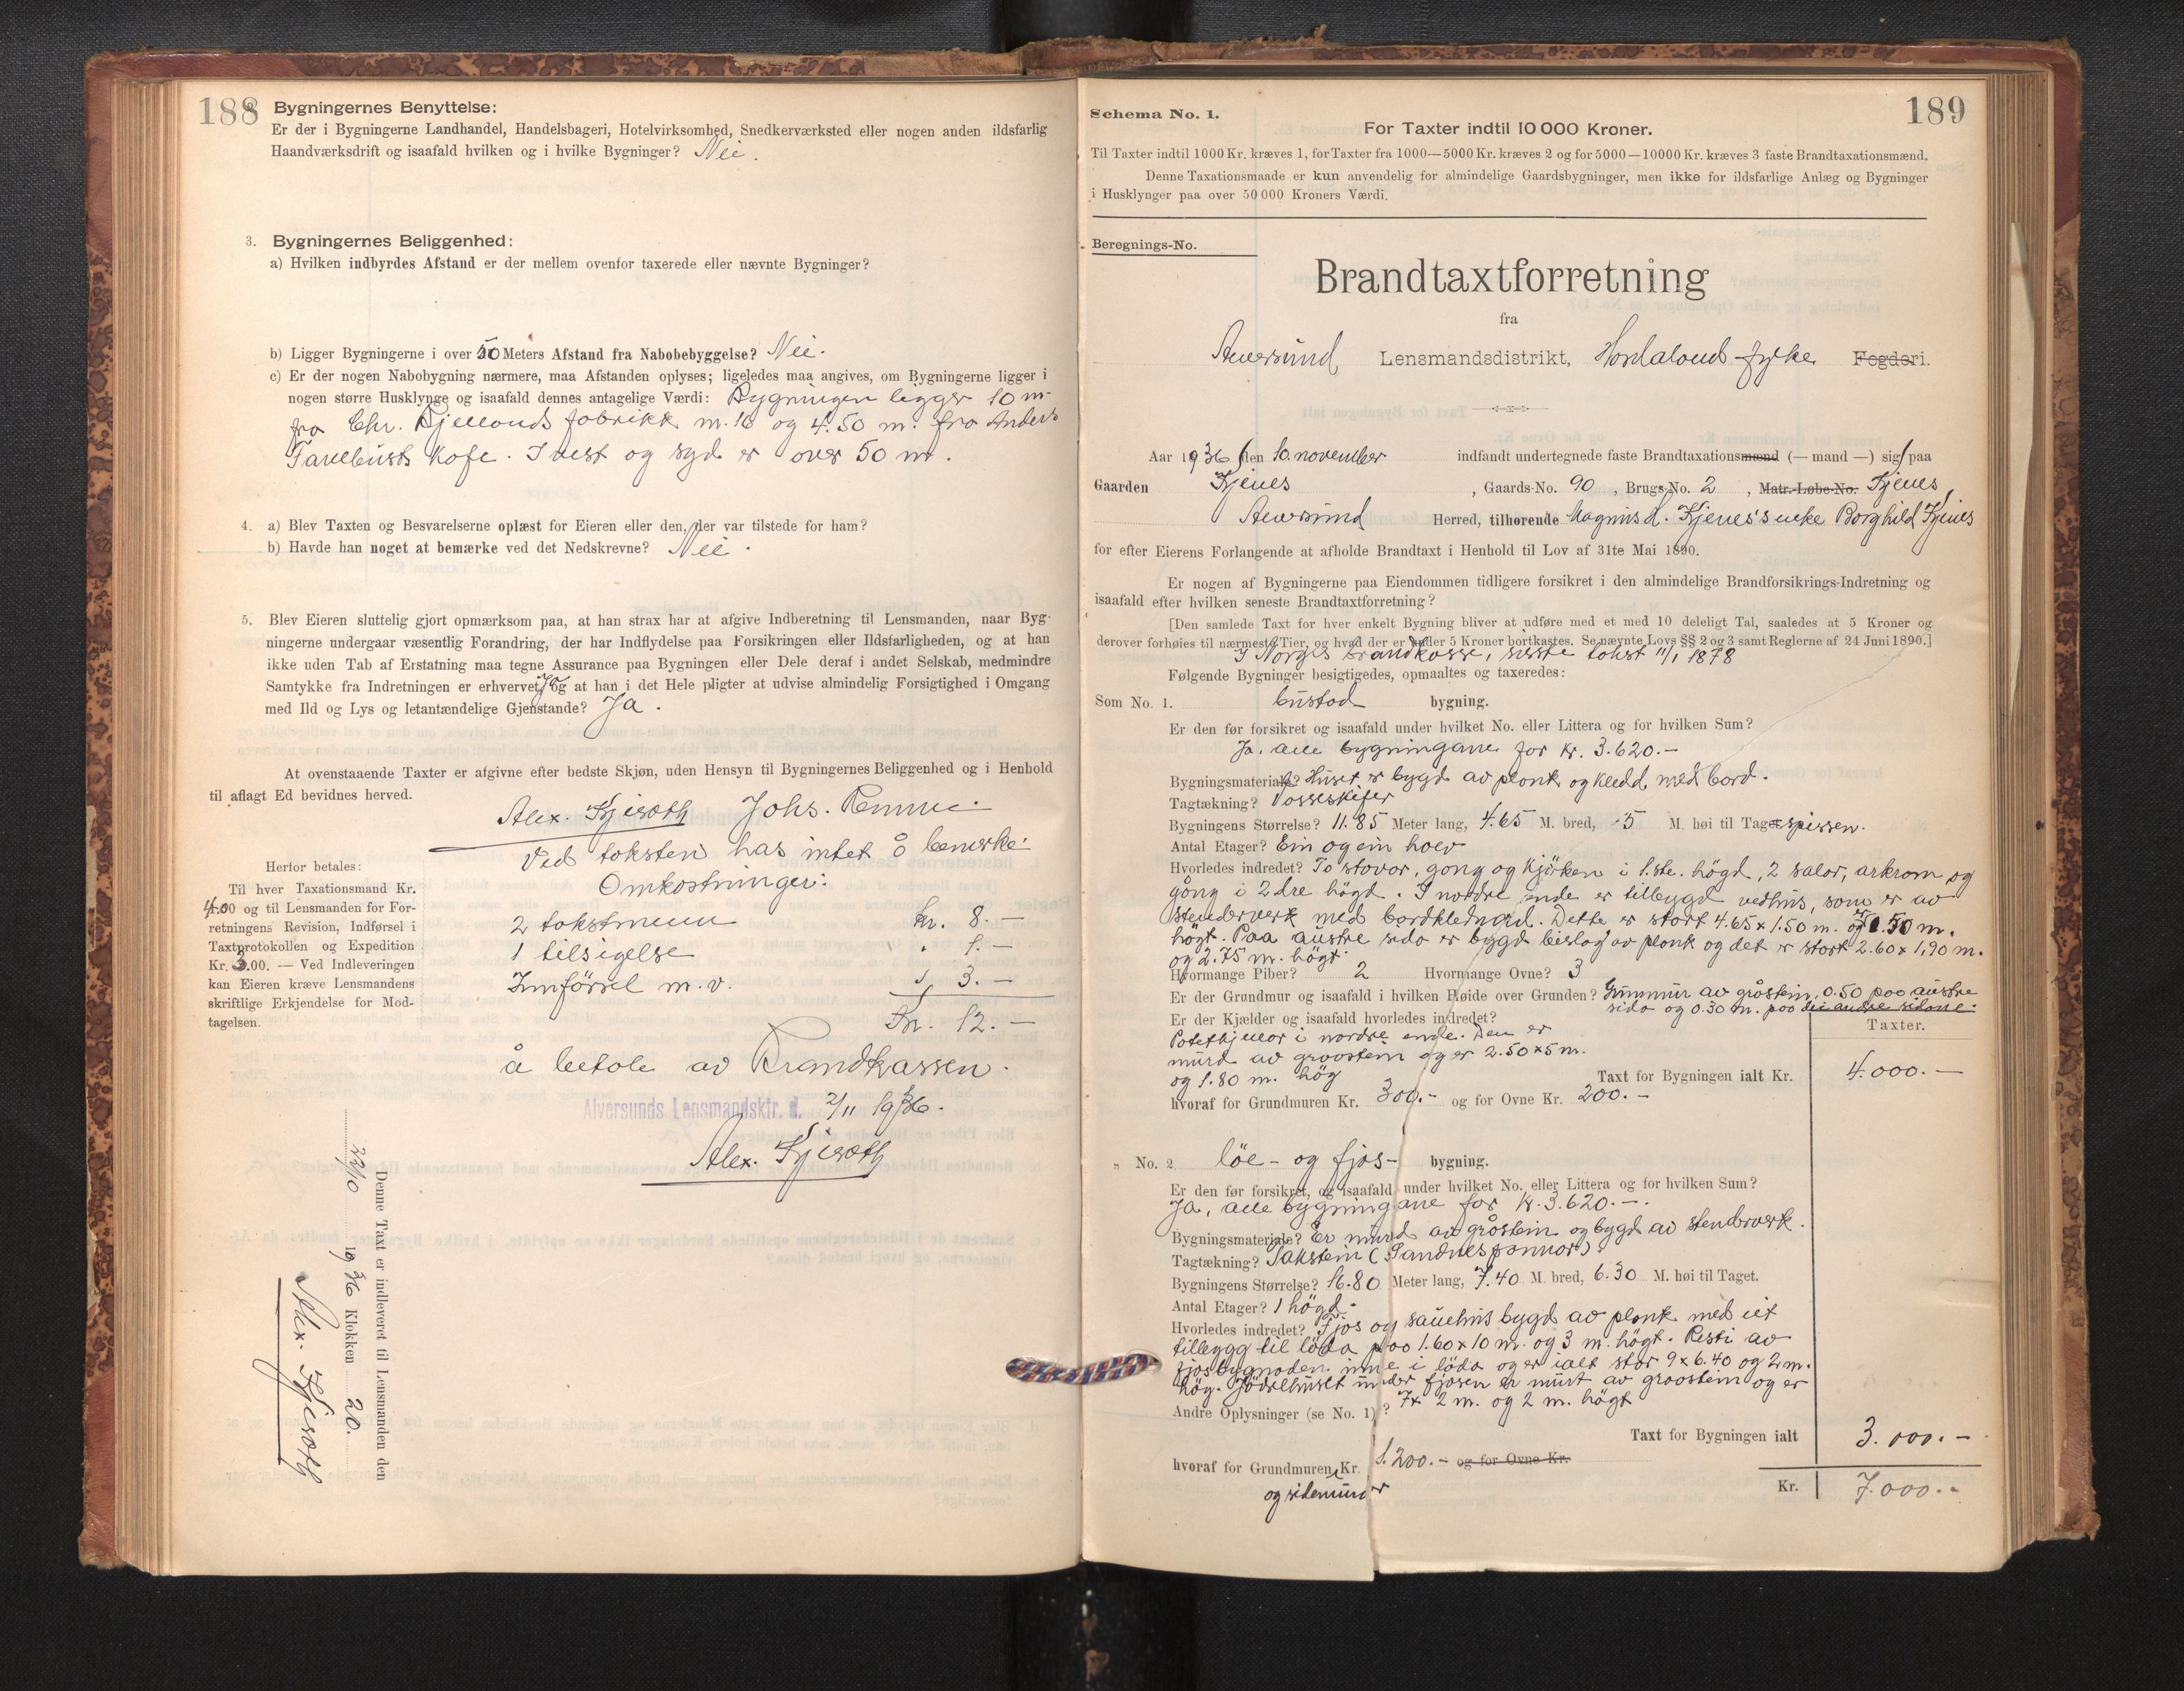 188
Bygningernes Benyttelse:
Er der i Bygningerne Landhandel, Handelsbageri, Hotelvirksomhed, Snedkerværksted eller nogen anden ildsfarlig
Haandværksdrift og isaafald hvilken og i hvilke Bygninger? Nei.
3. Bygningernes Beliggenhed:
a) Hvilken indbyrdes Afstand er der mellem ovenfor taxerede eller nævnte Bygninger?
b) Ligger Bygningerne i over 50 Meters Afstand fra Nabobebyggelse? Nei.
c) Er der nogen Nabobygning nærmere, maa Afstanden oplyses; ligeledes maa angives, om Bygningerne ligger i
nogen større Husklynge og isaafald dennes antagelige Værdi: Bygningen ligger 10 m.
fra Chr. fabrikk m. 16 og 4.50 m. fra Anders
kafe. I vest og syd er over 50 m.
4. a) Blev Taxten og Besvarelserne oplæst for Eieren eller den, der var tilstede for ham?
b) Havde han noget at bemærke ved det Nedskrevne? Nei.
5. Blev Eieren sluttelig gjort opmærksom paa, at han strax har at afgive Indberetning til Lensmanden, naar Byg-
ningerne undergaar væsentlig Forandring, der har Indflydelse paa Forsikringen eller Ildsfarligheden, og at han
ikke uden Tab af Erstatning maa tegne Assurance paa Bygningen eller Dele deraf i andet Selskab, medmindre
Samtykke fra Indretningen er erhvervet, og at han i det Hele pligter at udvise almindelig Forsigtighed i Omgang
med Ild og Lys og letantændelige Gjenstande? Ja.
At ovenstaaende Taxter er afgivne efter bedste Skjøn, uden Hensyn til Bygningernes Beliggenhed og i Henhold
til aflagt Ed bevidnes herved.
Alex. Johs.
Ved taksten has intet å bemerke.
Omkostninger:
Herfor betales:
Til hver Taxationsmand Kr.
4.00 og til Lensmanden for For-
retningens Revision, Indførsel i
Taxtprotokollen og Expedition
Kr. 3.00. — Ved Indleveringen
kan Eieren kræve Lensmandens
skriftlige Erkjendelse for Mod-
tagelsen.
2 takstmenn kr. 8.—
1 tilsigelse " 1.—
Innförsel m.v. " 3.—
Kr. 12.—
å betale av Brandkassen.
Alversunds Lensmandsktr. d. 2/11 1936.
Alex.
Denne Taxt er indleveret til Lensmanden den
22/10 1936 Klokken 20.
Alex.
189
Schema No. 1.
For Taxter indtil 10 000 Kroner.
Til Taxter indtil 1000 Kr. kræves 1, for Taxter fra 1000—5000 Kr. kræves 2 og for 5000—10000 Kr. kræves 3 faste Brandtaxationsmænd.
Denne Taxationsmaade er kun anvendelig for almindelige Gaardsbygninger, men ikke for ildsfarlige Anlæg og Bygninger
i Husklynger paa over 50 000 Kroners Værdi.
Beregnings-No.
Brandtaxtforretning
fra
Alversund Lensmandsdistrikt, Hordaland fylke Fogderi.
Aar 1936 den 10. november indfandt undertegnede faste Brandtaxationsmænd (— mand —) sig paa
Gaarden Kjenes, Gaards-No. 90, Brugs-No. 2, Matr.-Løbe-No. Kjenes,
Alversund Herred, tilhørende Magnus H. Kjenes's enke Borghild Kjenes
for efter Eierens Forlangende at afholde Brandtaxt i Henhold til Lov af 31te Mai 1890.
Er nogen af Bygningerne paa Eiendommen tidligere forsikret i den almindelige Brandforsikrings-Indretning og
isaafald efter hvilken seneste Brandtaxtforretning?
[Den samlede Taxt for hver enkelt Bygning bliver at udføre med et med 10 deleligt Tal, saaledes at 5 Kroner og
derover forhøies til nærmeste Tier, og hvad der er under 5 Kroner bortkastes. Se nævnte Lovs §§ 2 og 3 samt Reglerne af 24 Juni 1890.]
I Norges brandkasse, siste takst 11/1 1878
Følgende Bygninger besigtigedes, opmaaltes og taxeredes:
Som No. 1. bustad bygning.
Er den før forsikret og isaafald under hvilket No. eller Littera og for hvilken Sum?
Ja, alle bygningane for kr. 3.620.—
Bygningsmateriale? Huset er bygd av plank og kledd med bord.
Tagtækning? Vosseskifer
Bygningens Størrelse? 11.85 Meter lang, 4.65 M. bred, 5 M. høi til Taget spissen.
Antal Etager? Ein og ein halv
Hvorledes indredet? To stovor, gang og kjöken i 1.ste. högd, 2 salar, arkrom og
gang i 2dre högd. I nordre ende er tilbygd vedhus, som er av
stenderverk med bordkledning. Dette er stort 4.65 x 1.50 m. og 1.50 m.
högt. Paa austre sida er bygd bislag av plank og det er stort 2.60 x 1,90 m.
og 2.75 m. högt.
Hvormange Piber? 2 Hvormange Ovne? 3
Er der Grundmur og isaafald i hvilken Høide over Grunden? Grunnmur av gråstein, 0.50 paa austre
sida og 0.30 m. paa dei andre sidone.
Er der Kjælder og isaafald hvorledes indredet?
Potetkjellar i nordre ende. Den er
murd av graastein og er 2.50 x 5 m.
og 1.80 m. hög
Taxter.
Taxt for Bygningen ialt Kr. 4.000.—
hvoraf for Grundmuren Kr. 300.— og for Ovne Kr. 200.—
" No. 2 löe- og fjos- bygning.
Er den før forsikret, og isaafald under hvilket No. eller Littera og for hvilken Sum?
Ja, alle bygningane for kr. 3.620.—.
Bygningsmateriale? Er murd av gråstein og bygd av stenderverk.
Tagtækning? Takstein (Sandnespannor).
Bygningens Størrelse? 16.80 Meter lang, 7.40 M. bred, 6.30 M. høi til Taget.
Antal Etager? 1 högd.
Hvorledes indredet? Fjos og sauehus bygd av plank med eit
tillegg til löda paa 1.60 x 10 m. og 3 m. högt. Resti av
fjosbygnaden inne i löda og er ialt stor 9 x 6.40 og 2 m.
hög. under fjosen er murt av graastein og er
7 x 2 m. og 2 m. högt
Andre Oplysninger (se No. 1)?
Taxt for Bygningen ialt 3.000.—
hvoraf for Grundmuren Kr. 1.200.— og for Ovne Kr.
og sidemurar
Kr. 7.000.—